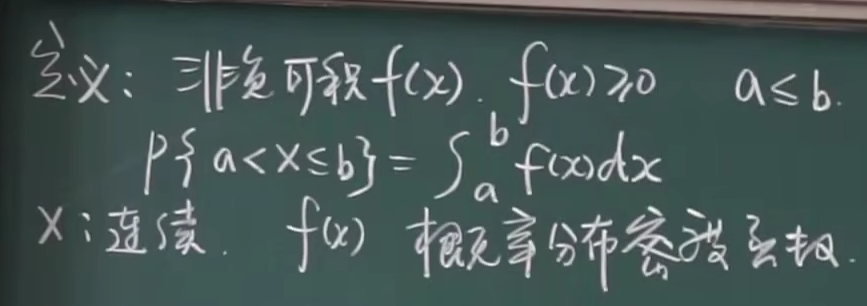 定义：非负可积f(x). f(x)≥0 a≤b.
P{a<X≤b}=∫_a^b f(x)dx
X：连续. f(x) 概率分布密度函数.